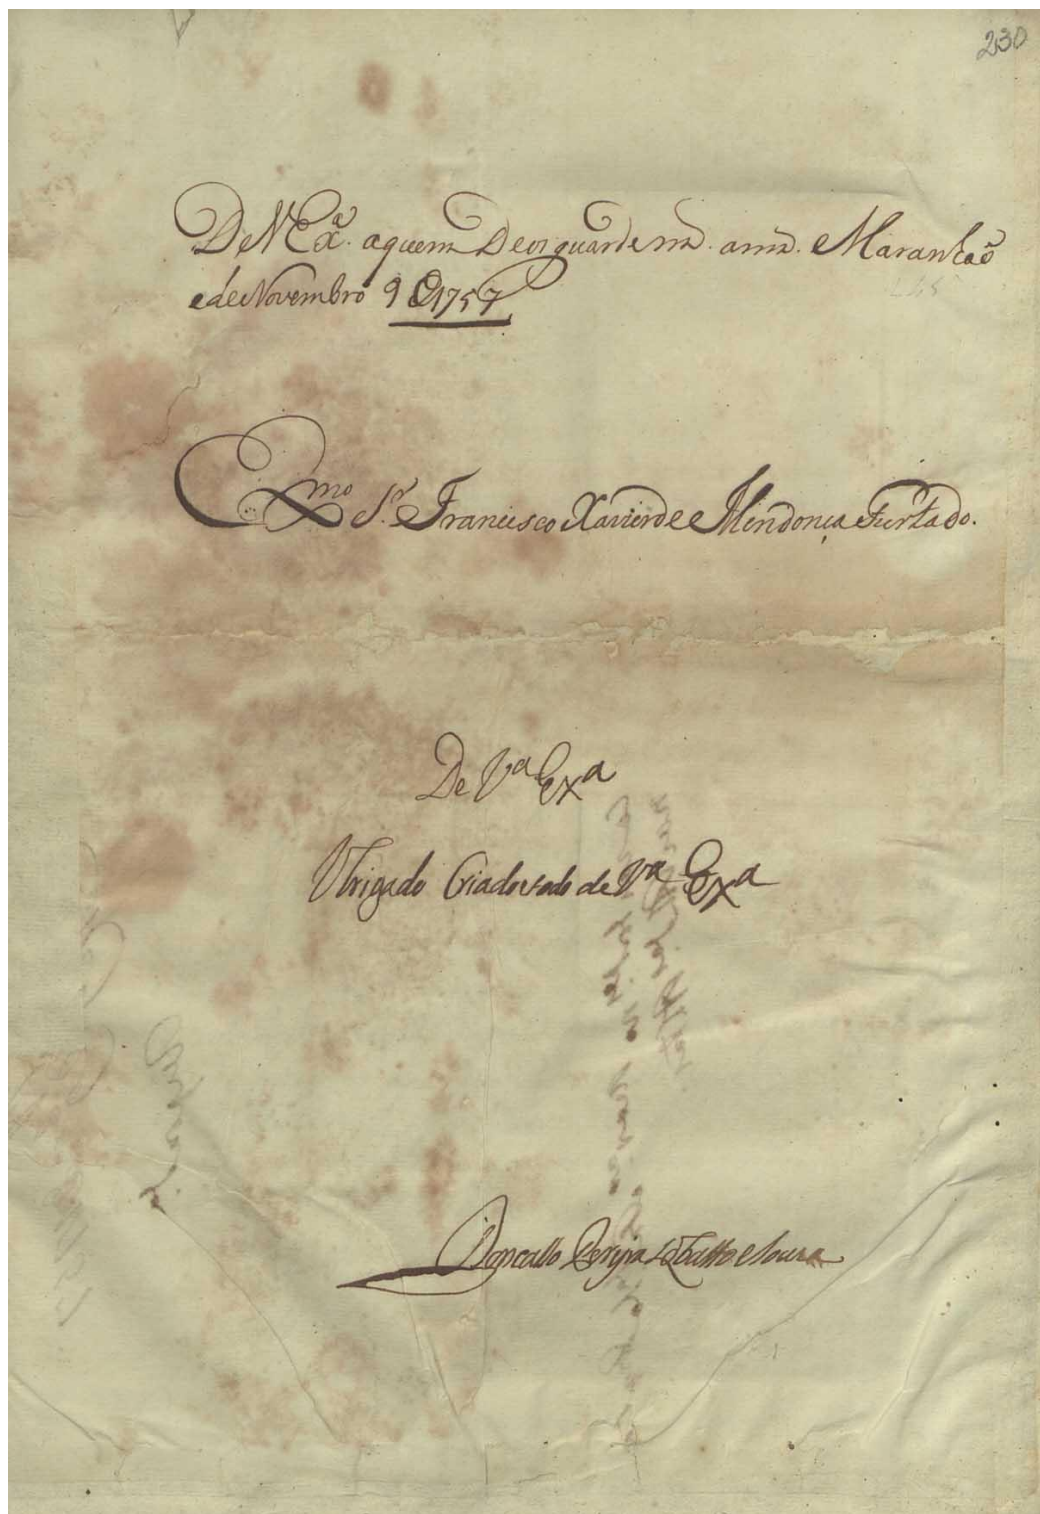 230
De V Ex.ª aquem Deos guarde m.s ann.s Maranhaõ
e de Novembro 9 de 1757
Ex.mo S.r Francisco Xavier de Mendonça Furtado.
De V.ª Ex.ª
Obrigado Criado de V.ª Ex.ª
Gonçallo Pereyra Lobatto e Souza